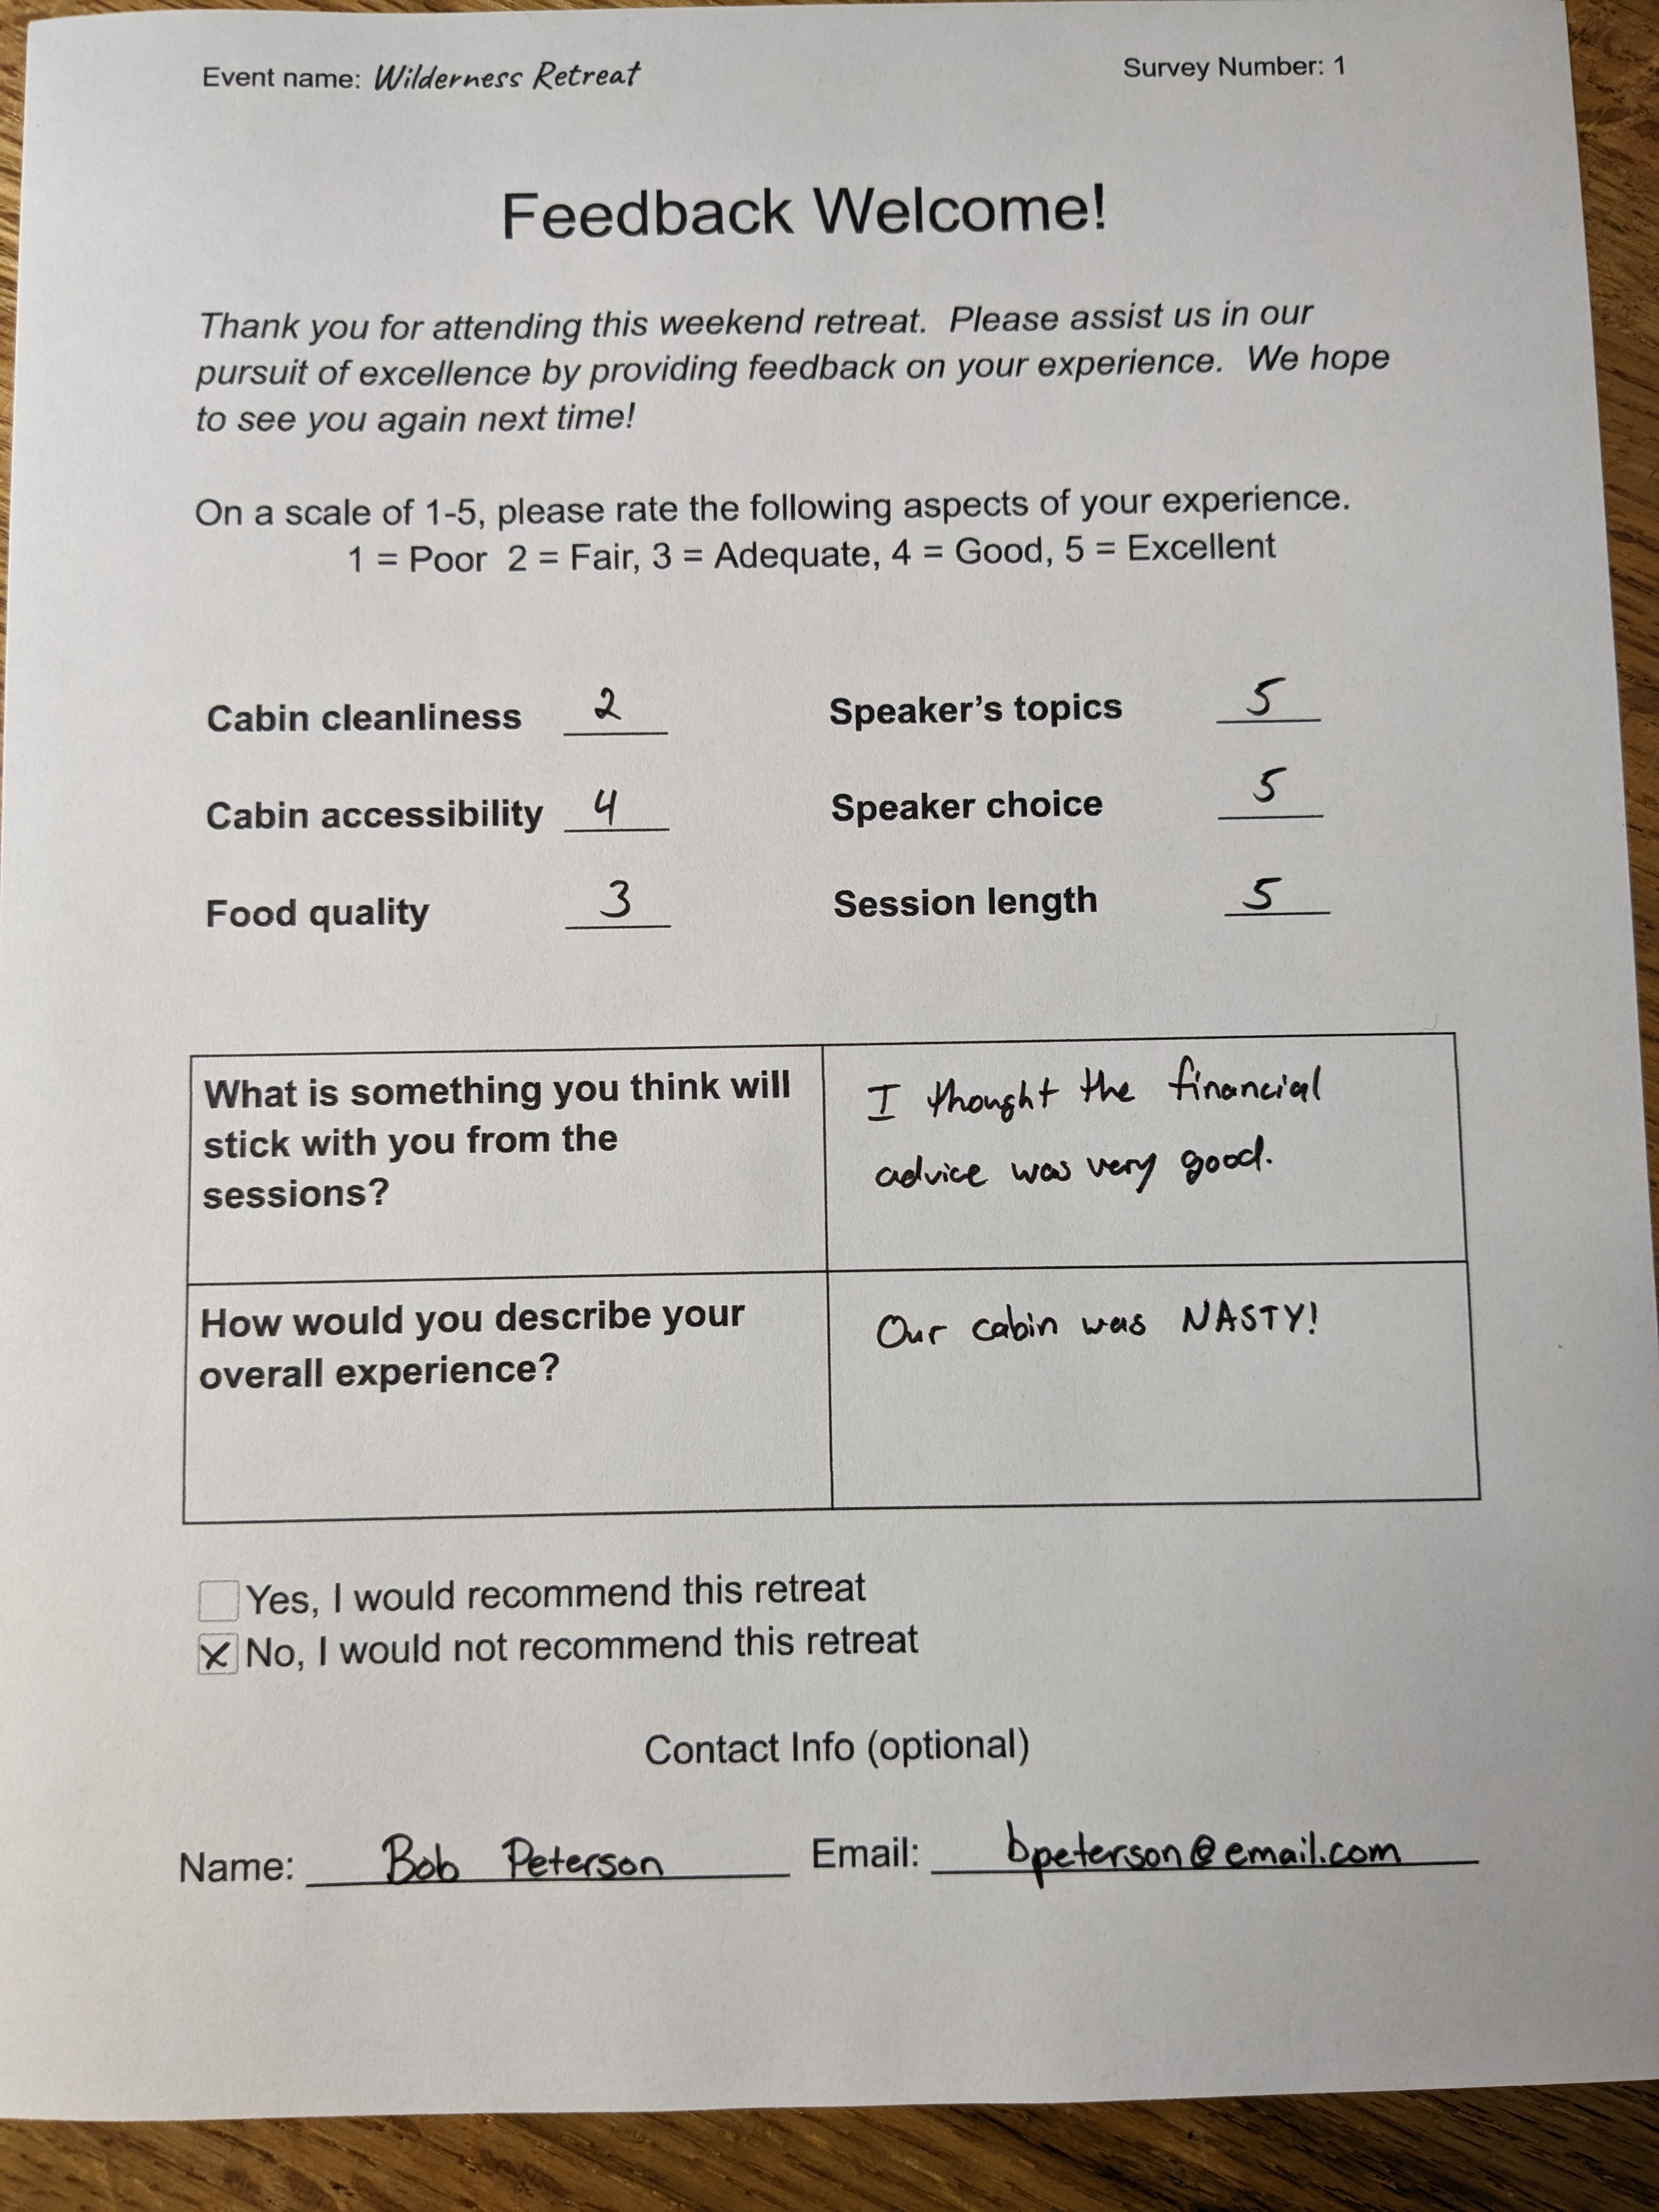 Event name: Wilderness Retreat Survey Number: 1
Feedback Welcome!
Thank you for attending this weekend retreat. Please assist us in our
pursuit of excellence by providing feedback on your experience. We hope
to see you again next time!
On a scale of 1-5, please rate the following aspects of your experience.
1 = Poor 2 = Fair, 3 = Adequate, 4 = Good, 5 = Excellent
Cabin cleanliness 2 Speaker's topics 5
Cabin accessibility 4 Speaker choice 5
Food quality 3 Session length 5
What is something you think will
stick with you from the
sessions?
I thought the financial
advice was very good.
How would you describe your
overall experience?
Our cabin was NASTY!
Yes, I would recommend this retreat
X No, I would not recommend this retreat
Contact Info (optional)
Name: Bob Peterson Email: bpeterson@email.com